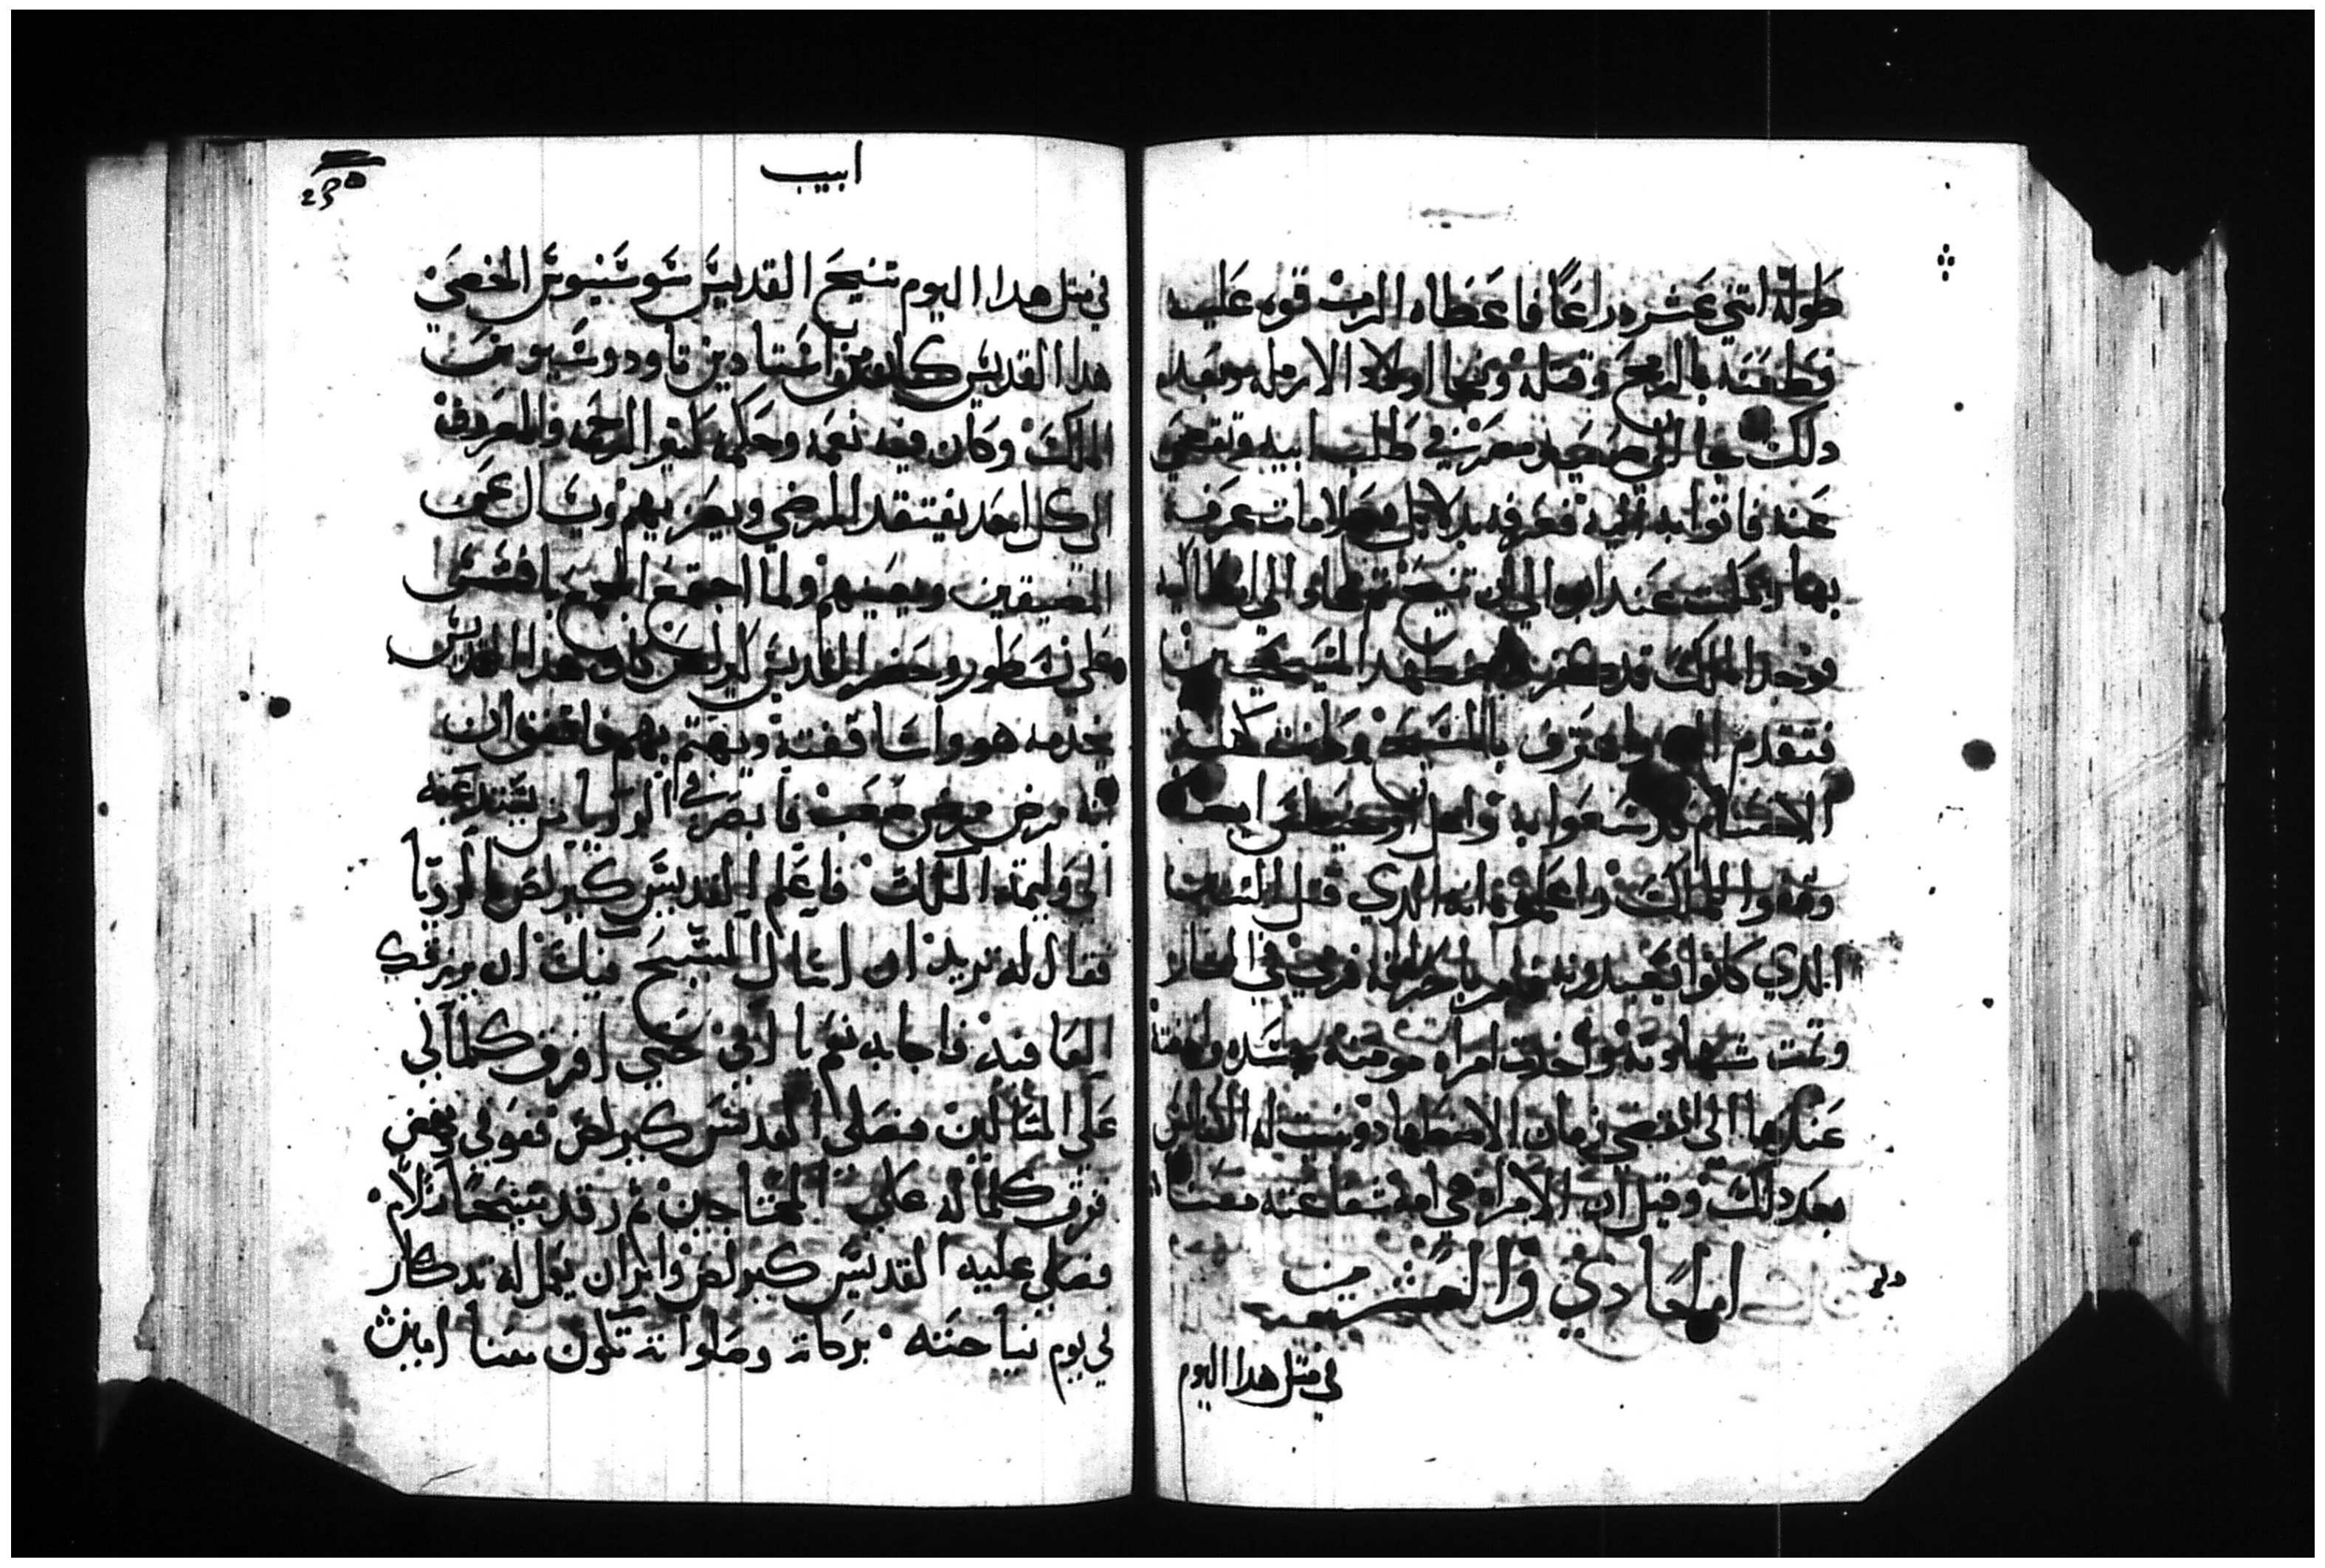 طوله اتني عشره دراعًا فاعطاه الرب قوه عليه
فطعنه بالرمح وقتله ونجا اولاد الارمله وبعد
دلك جا الى صعيد مصر في طلب ابيه وتقصى
عنه فاتوا به اليه فعرفه بدلايل وعلامات عرف
بها ومكت عند ابوه الى ان تنيح تم جاء الى انطاكيه
فوجد الملك قد كفر المسيحيين
فتقدم واعترف بالمسيح وكانت كهنة
الاصنام قد سعوا به
وقفوا للملك واعلموه بانه الدي قتل التعبان
الدي كانوا يعبدونه فامر في النار
وتمت شهادته واخدت امراه مومنه جسده واخفته
عندها الى انقضى زمان الاضطهاد وبنيت له الكنايس
بعد دلك وقيل ان الامراه هي امه شفاعته معنا
الحادي والعشرين
في متل هدا اليوم
ابيب
في متل هدا اليوم تنيح القديس سوسنيوس الخصي
هدا القديس كان استادين تاودوسيوس
الملك وكان فيه نعمه وحكمه كتير الرحمه والمعروف
الى كل احد يفتقد المرضى ويصر بهم ويسال عن
المضيقين ويعينهم ولما اجتمع المجمع بافسس
على نسطور وحضر القديس كيرلص كان هدا القديس
يخدمه هو واساقفته ويهتم بهم فاتفق ان
انه مرض مرض صعب فابصر في الرويا من يستدعيه
الى وليمة الملك فاعلم القديس كيرلص بالرويا
فقال له تريد ان اسال المسيح فيك ان يرزقك
العافيه فاجابه نعم يا ابي حتى افرق كلما لي
على المساكين فصلى القديس كيرلص فعوفي ونهض
فرق كلما له على المحتاجين تم رقد تنيح بسلام
فصلى عليه القديس كيرلص وامر ان يعمل له تدكار
في يوم نياحته بركاته وصلواته تكون معنا امين